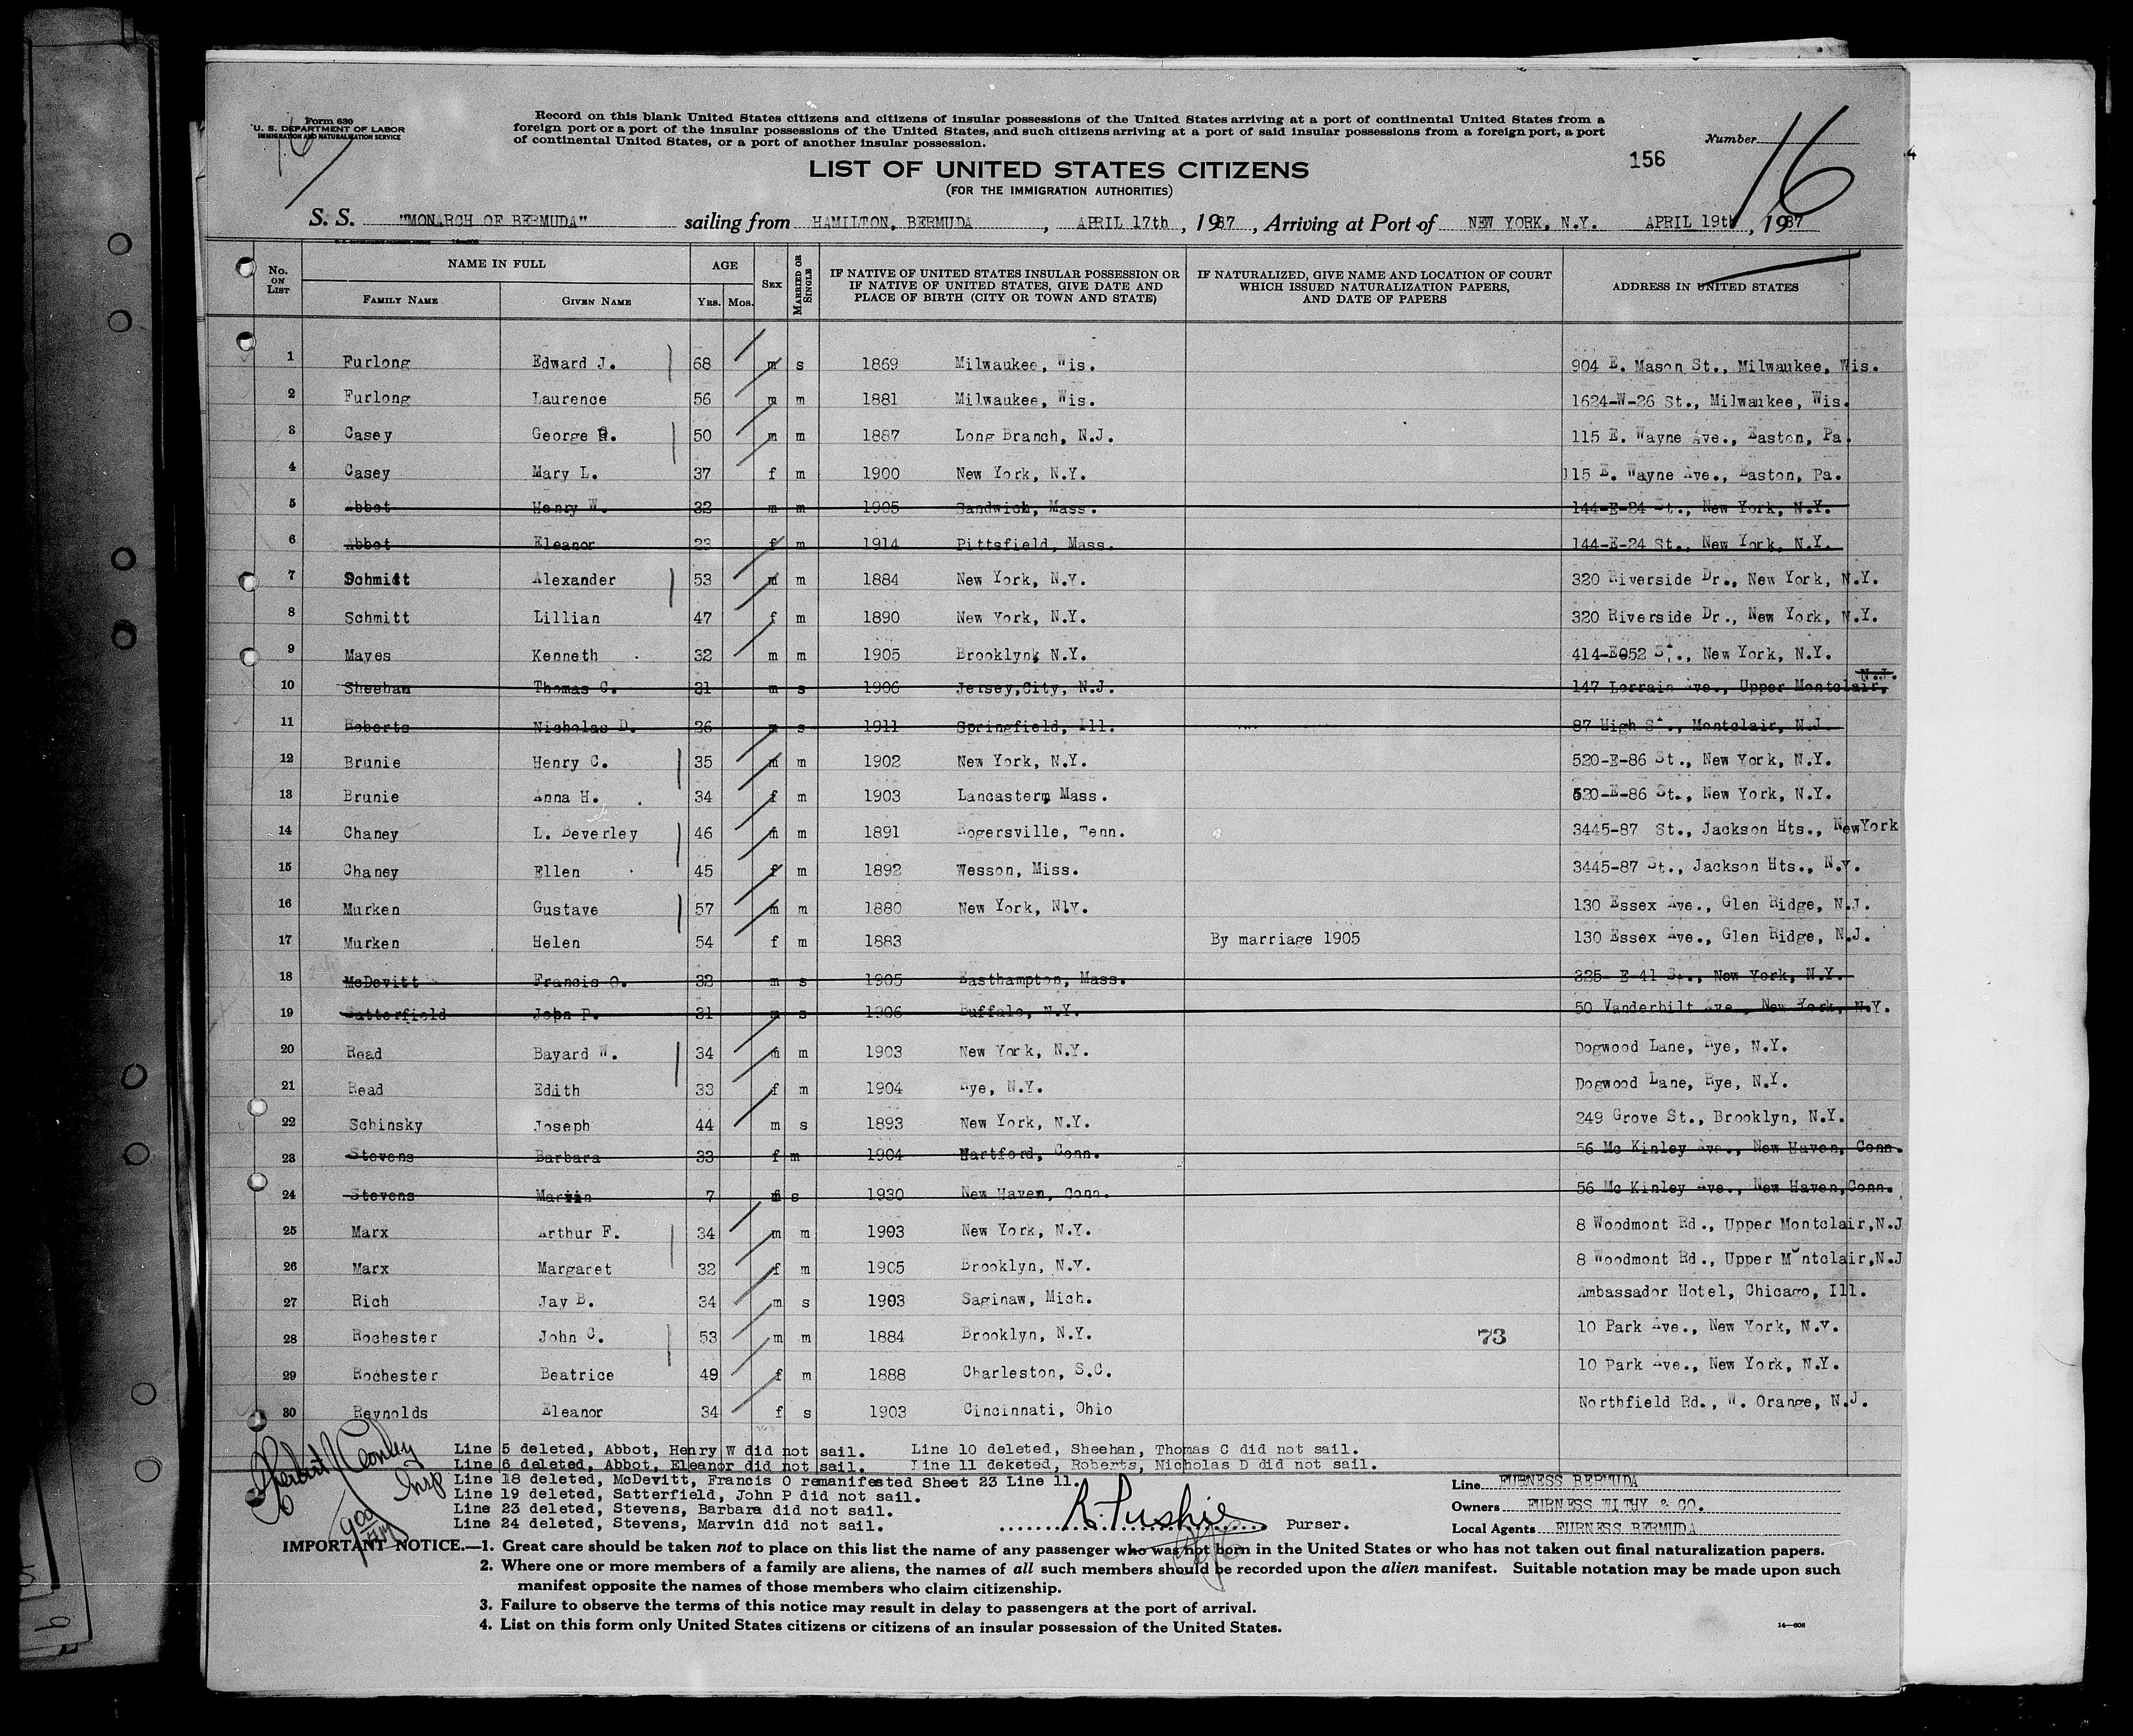 Form 630
U. S. DEPARTMENT OF LABOR
IMMIGRATION AND NATURALIZATION SERVICE
16
Record on this blank United States citizens and citizens of insular possessions of the United States arriving at a port of continental United States from a
foreign port or a port of the insular possessions of the United States, and such citizens arriving at a port of said insular possessions from a foreign port, a port
of continental United States, or a port of another insular possession.
Number 16
156
LIST OF UNITED STATES CITIZENS
(FOR THE IMMIGRATION AUTHORITIES)
S. S. "MONARCH OF BERMUDA" sailing from HAMILTON, BERMUDA, APRIL 17th, 1937, Arriving at Port of NEW YORK, N.Y. APRIL 19th, 1937
No. ON LIST NAME IN FULL AGE SEX MARRIED OR SINGLE IF NATIVE OF UNITED STATES INSULAR POSSESSION OR IF NATIVE OF UNITED STATES, GIVE DATE AND PLACE OF BIRTH (CITY OR TOWN AND STATE) IF NATURALIZED, GIVE NAME AND LOCATION OF COURT WHICH ISSUED NATURALIZATION PAPERS, AND DATE OF PAPERS ADDRESS IN UNITED STATES
FAMILY NAME GIVEN NAME YRS. MOS.
1 Furlong Edward J. 68 m s 1869 Milwaukee, Wis. 904 E. Mason St., Milwaukee, Wis.
2 Furlong Laurence 56 m m 1881 Milwaukee, Wis. 1624-W-26 St., Milwaukee, Wis.
3 Casey George 50 m m 1887 Long Branch, N.J. 115 E. Wayne Ave., Easton, Pa.
4 Casey Mary L. 37 f m 1900 New York, N.Y. 115 E. Wayne Ave., Easton, Pa.
5 Abbot Henry W. 32 m m 1905 Sandwich, Mass. 144-E-24 St., New York, N.Y.
6 Abbot Eleanor 23 f m 1914 Pittsfield, Mass. 144-E-24 St., New York, N.Y.
7 Schmitt Alexander 53 m m 1884 New York, N.Y. 320 Riverside Dr., New York, N.Y.
8 Schmitt Lillian 47 f m 1890 New York, N.Y. 320 Riverside Dr., New York, N.Y.
9 Mayes Kenneth 32 m m 1905 Brooklyn, N.Y. 414-E052 St., New York, N.Y.
10 Sheehan Thomas C. 31 m s 1906 Jersey,City, N.J. 147 Lorrain Ave., Upper Montclair, N.J.
11 Roberts Nicholas D. 26 m s 1911 Springfield, Ill. 87 High St., Montclair, N.J.
12 Brunie Henry C. 35 m m 1902 New York, N.Y. 520-E-86 St., New York, N.Y.
13 Brunie Anna H. 34 f m 1903 Lancaster, Mass. 520-E-86 St., New York, N.Y.
14 Chaney L. Beverley 46 m m 1891 Rogersville, Tenn. 3445-87 St., Jackson Hts., NewYork
15 Chaney Ellen 45 f m 1892 Wesson, Miss. 3445-87 St., Jackson Hts., N.Y.
16 Murken Gustave 57 m m 1880 New York, Nly. 130 Essex Ave., Glen Ridge, N.J.
17 Murken Helen 54 f m 1883 By marriage 1905 130 Essex Ave., Glen Ridge, N.J.
18 McDevitt Francis O. 32 m s 1905 Easthampton, Mass. 325- E-41 St., New York, N.Y.
19 Satterfield John P. 31 m s 1906 Buffalo, N.Y. 50 Vanderbilt Ave., New York, N.Y.
20 Read Bayard W. 34 m m 1903 New York, N.Y. Dogwood Lane, Rye, N.Y.
21 Read Edith 33 f m 1904 Rye, N.Y. Dogwood Lane, Rye, N.Y.
22 Schinsky Joseph 44 m s 1893 New York, N.Y. 249 Grove St., Brooklyn, N.Y.
23 Stevens Barbara 33 f m 1904 Hartford, Conn. 56 Mc Kinley Ave., New Haven, Conn.
24 Stevens Marvin 7 m s 1930 New Haven, Conn. 56 Mc Kinley Ave., New Haven,Conn.
25 Marx Arthur F. 34 m m 1903 New York, N.Y. 8 Woodmont Rd., Upper Montclair,N.J
26 Marx Margaret 32 f m 1905 Brooklyn, N.Y. 8 Woodmont Rd., Upper Montclair,N.J
27 Rich Jay B. 34 m s 1903 Saginaw, Mich. Ambassador Hotel, Chicago, Ill.
28 Rochester John C. 53 m m 1884 Brooklyn, N.Y. 73 10 Park Ave., New York, N.Y.
29 Rochester Beatrice 49 f m 1888 Charleston, S.C. 10 Park Ave., New York, N.Y.
30 Reynolds Eleanor 34 f s 1903 Cincinnati, Ohio Northfield Rd., W. Orange, N.J.
Line 5 deleted, Abbot, Henry W did not sail. Line 10 deleted, Sheehan, Thomas C did not sail.
Line 6 deleted, Abbot, Eleanor did not sail. Line 11 deketed, Roberts, Nicholas D did not sail.
Line 18 deleted, McDevitt, Francis O remanifested Sheet 23 Line 11.
Line 19 deleted, Satterfield, John P did not sail.
Line 23 deleted, Stevens, Barbara did not sail.
Line 24 deleted, Stevens, Marvin did not sail.
Herbert J Conley Insp
900 AM
R. Pushie Purser.
Line FURNESS BERMUDA
Owners FURNESS WITHY & CO.
Local Agents FURNESS BERMUDA
IMPORTANT NOTICE.—1. Great care should be taken not to place on this list the name of any passenger who was not born in the United States or who has not taken out final naturalization papers.
2. Where one or more members of a family are aliens, the names of all such members should be recorded upon the alien manifest. Suitable notation may be made upon such
manifest opposite the names of those members who claim citizenship.
3. Failure to observe the terms of this notice may result in delay to passengers at the port of arrival.
4. List on this form only United States citizens or citizens of an insular possession of the United States.
14—608